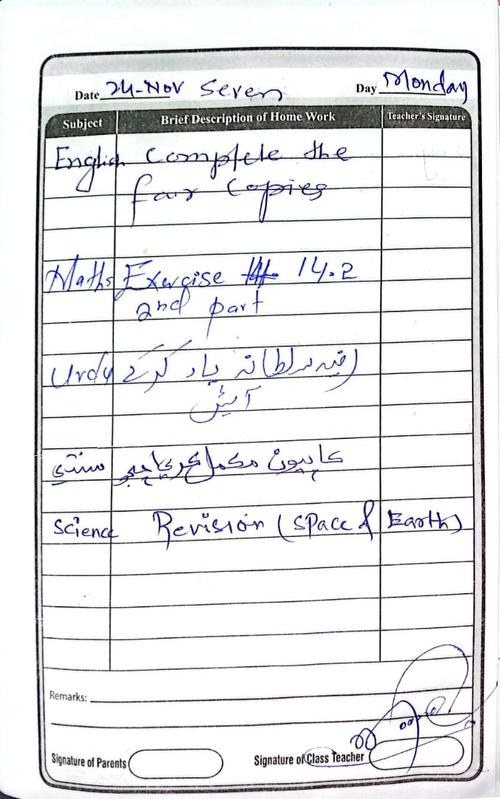 Date 24-Nov Seven Day Monday
Subject Brief Description of Home Work Teacher's Signature
English Complete the
fair Copies
Maths Exercise 14.2
2nd part
Urdu رضیہ سلطانہ یاد کرکے
آئیں
سنڌي ڪاپيون مڪمل ڪري اچو
Science Revision (Space & Earth)
Remarks:
Signature of Parents Signature of Class Teacher